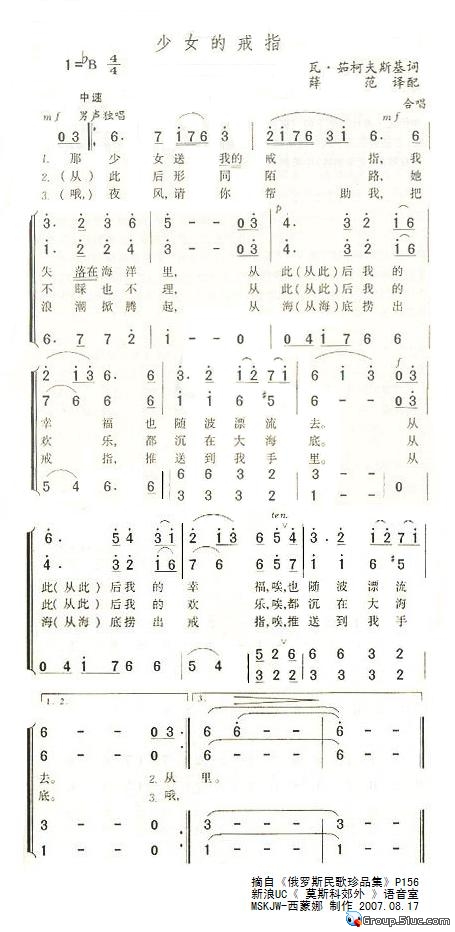 少女的戒指
1=♭B 4/4
瓦·茹柯夫斯基词
薛 范 译配
中速
合唱
mf 男声独唱
mf
0 3 6. 7 1 7 6 3 2 1 7 6 3
1. 那 少 女 送 我的 戒 指,我
2.(从)此 后 形 同 陌 路,她
3.(哦,)夜 风,请 你 帮 助 我,把
p
3. 2 3 6 5 - - 0 3 4. 3 2 1 0 6
1. 2 2 4 1 - - 0 3 4. 3 2 1 0 6
失 落在 海 洋 里, 从 此(从此)后 我 的
不 睬 也 不 理, 从 此(从此)后 我 的
浪 潮 掀 腾 起, 从 海(从海)底 捞 出
6. 2 3 2 1 - - 0 0 4 1 7 6 6
f
2 1 3 6. 6 3. 2 1 2 1 7 6 - - 0 3
7 6 6 6 1. 6 1 6 #5 6 - - 0 3
幸 福 也 随 波 漂 流 去。 从
欢 乐, 都 沉 在 大 海 底。 从
戒 指, 推 送 到 我 手 里。 从
5 4 6. 6 2 3 3 3 3 - - 0
1 2 3 2 1 - - 0
ten.
6. 5 4 3 1 2 1 3 6 5 4 3. 2 1 2 7 1
4. 3 2 1 6
此(从此)后 我 的 幸 福,唉,也 随 波 漂 流
此(从此)后 我 的 欢 乐,唉,都 沉 在 大 海
海(从海)底 捞 出 戒 指,唉,推 送 到 我 手
0 4 1 7 6 6 5 4 5 2 6 6 6 3 2
1. 2. 3.
6 - - 0 3 6 - - 6 6 - - 0
6 - - 0 3 6 - - 6 6 - - 0
去。 2.从 里。
底。 3.哦,
3 - - 0
1 - - 0
摘自《俄罗斯民歌珍品集》P156
新浪UC《 莫斯科郊外 》语音室
MSKJW-西蒙娜 制作 2007.08.17
Group.51uc.com